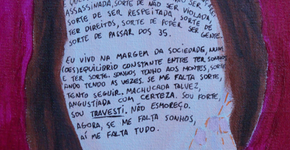 ASSASSINADA, SORTE DE NÃO SER VIOLADA,
SORTE DE SER RESPEITADA, SORTE DE
TER DIREITOS, SORTE DE PODER SER GENTE,
SORTE DE PASSAR DOS 35.
EU VIVO NA MARGEM DA SOCIEDADE, NUM
(DES)EQUILÍBRIO CONSTANTE ENTRE TER SONHOS
E TER SORTE. SONHOS TENHO AOS MONTES, SORTE
ANDO TENDO ÀS VEZES. SE ME FALTA SORTE,
TENTO SEGUIR. MACHUCADA TALVEZ,
ANGUSTIADA COM CERTEZA. SOU FORTE,
SOU TRAVESTI. NÃO ESMOREÇO.
AGORA, SE ME FALTA SONHOS,
AÍ ME FALTA TUDO.